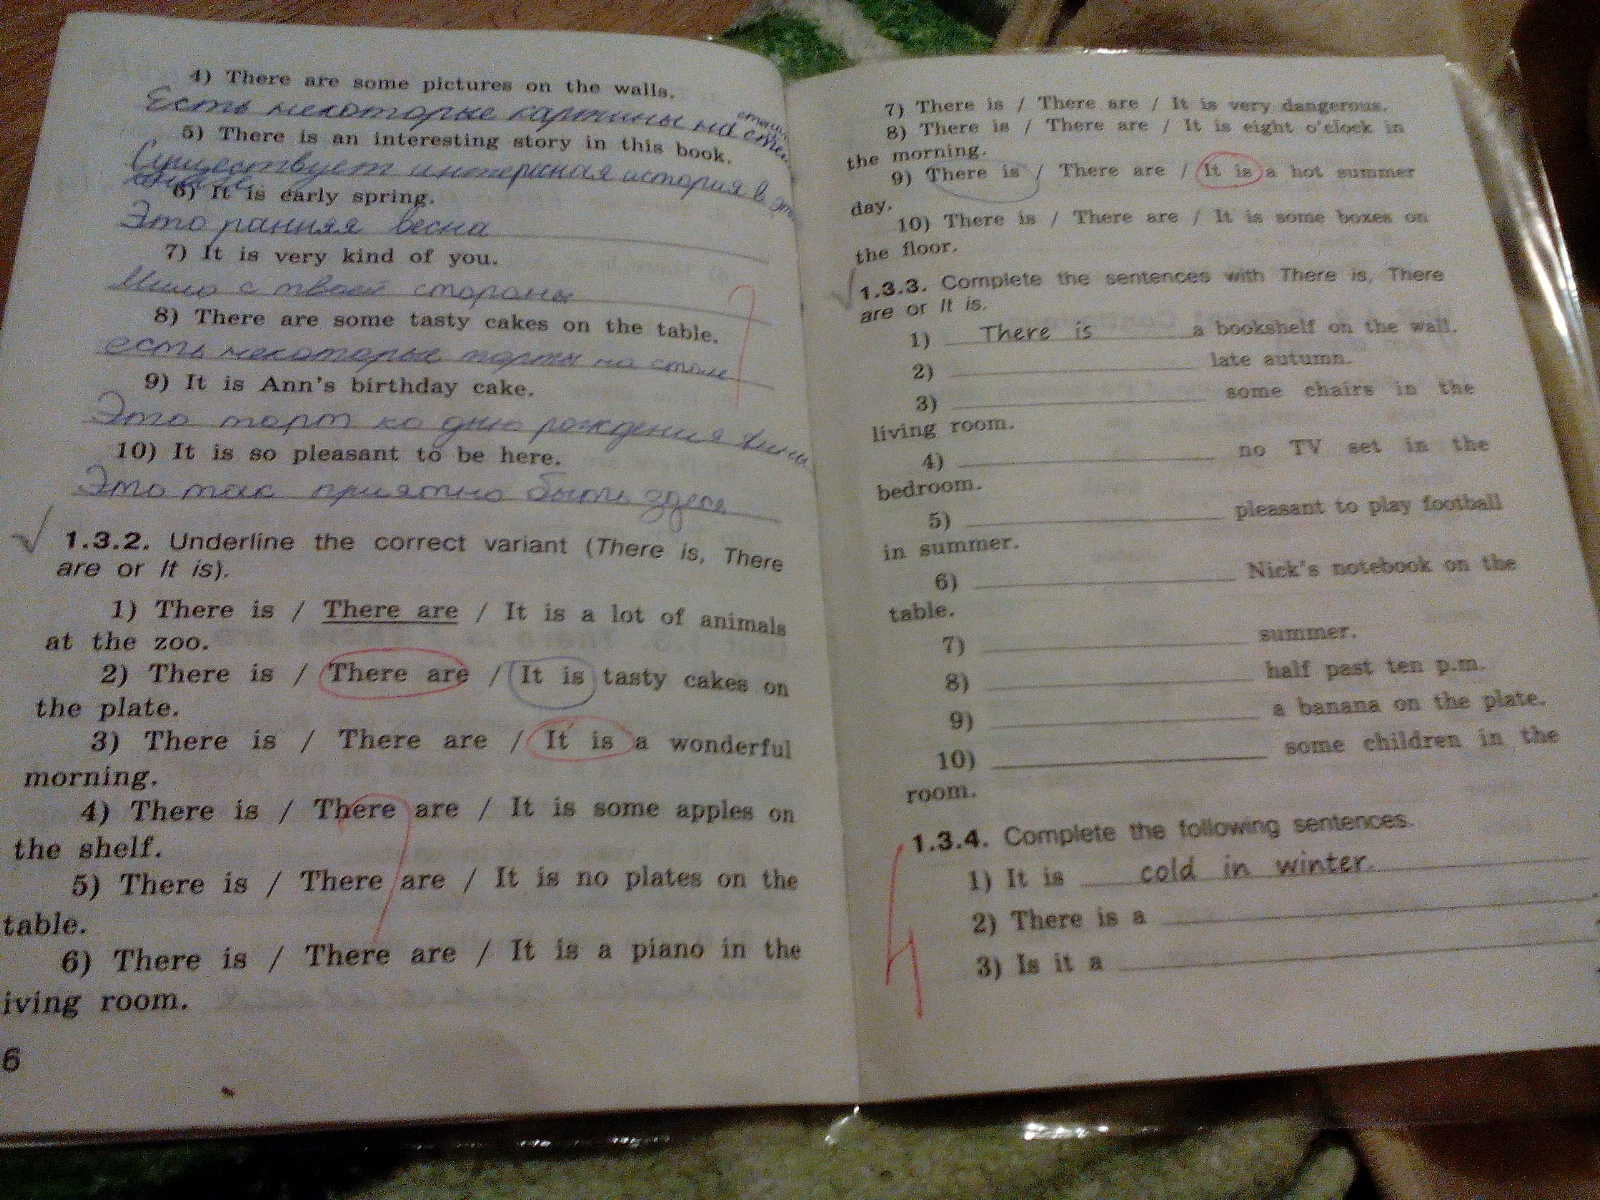 4) There are some pictures on the walls.
Есть некоторые картины на стене
5) There is an interesting story in this book.
Существует интересная история в
6) It is early spring.
Это ранняя весна
7) It is very kind of you.
Мило с твоей стороны
8) There are some tasty cakes on the table.
есть некоторые торты на столе
9) It is Ann's birthday cake.
Это торт ко дню рождения
10) It is so pleasant to be here.
Это так приятно быть здесь
1.3.2. Underline the correct variant (There is, There
are or It is).
1) There is / There are / It is a lot of animals
at the zoo.
2) There is / There are / It is tasty cakes on
the plate.
3) There is / There are / It is a wonderful
morning.
4) There is / There are / It is some apples on
the shelf.
5) There is / There are / It is no plates on the
table.
6) There is / There are / It is a piano in the
iving room.
6
7) There is / There are / It is very dangerous.
8) There is / There are / It is eight o'clock in
the morning.
9) There is / There are / It is a hot summer
day.
10) There is / There are / It is some boxes on
the floor.
1.3.3. Complete the sentences with There is, There
are or It is.
1) There is a bookshelf on the wall.
2) late autumn.
3) some chairs in the
living room.
4) no TV set in the
bedroom.
5) pleasant to play football
in summer.
6) Nick's notebook on the
table.
7) summer.
8) half past ten p.m.
9) a banana on the plate.
10) some children in the
room.
1.3.4. Complete the following sentences.
1) It is cold in winter.
2) There is a
3) Is it a